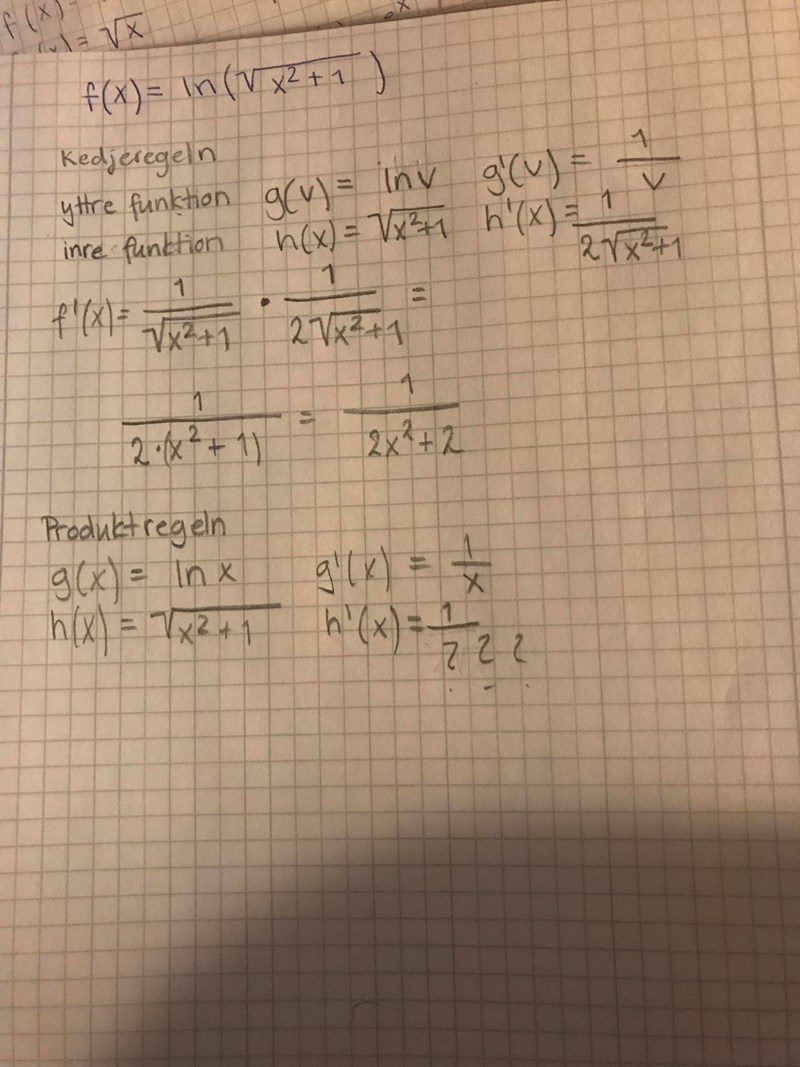 f(x)
= √x
x
f(x) = ln(√x²+1)
Kedjeregeln
yttre funktion g(v) = lnv g'(v) = 1/v
inre funktion h(x) = √x²+1 h'(x) = 1/2√x²+1
f'(x) = 1/√x²+1 · 1/2√x²+1 =
1/2·(x²+1) = 1/2x²+2
Produktregeln
g(x) = ln x g'(x) = 1/x
h(x) = √x²+1 h'(x) = 1/? ? ?